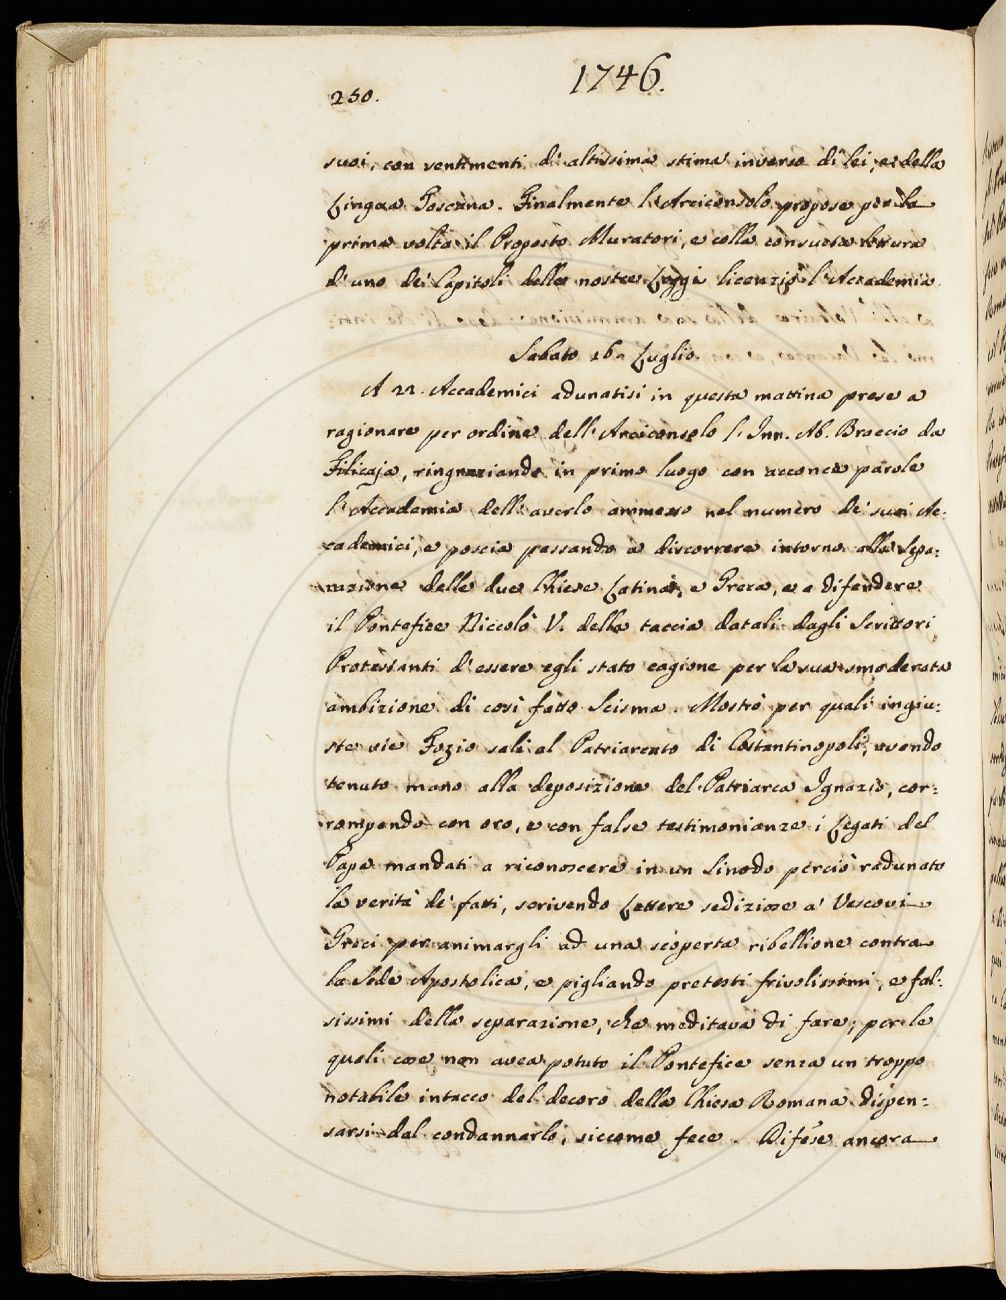 1746.
250.
suoi, con sentimenti di altissima stima inverso di lei, e della
Lingua Toscana. Finalmente l'Arciconsolo propose per la
prima volta il Proposto Muratori, e colla consueta lettura
d'uno de' Capitoli delle nostre Leggi licenziò l'Accademia.
Sabato 16. Luglio.
A 22. Accademici adunatisi in questa mattina prese a
ragionare per ordine dell'Arciconsolo l'Inn. Ab. Braccio da
Filicaja, ringraziando in primo luogo con acconce parole
l'Accademia dell'averlo ammesso nel numero de' suoi Ac:
cademici, e poscia passando a discorrere intorno alla Sepa:
razione delle due Chiese Latina, e Greca, e a difendere
il Pontefice Niccolò V. della taccia datali dagli Scrittori
Protestanti d'essere egli stato cagione per la sua smoderata
ambizione di così fatto Scisma. Mostrò per quali ingiu:
ste vie Fozio salì al Patriarcato di Costantinopoli, avendo
tenuto mano alla deposizione del Patriarca Ignazio, cor:
rompendo con oro, e con false testimonianze i Legati del
Papa mandati a riconoscere in un Sinodo perciò radunato
la verità de' fatti, scrivendo Lettere sediziose a' Vescovi
Greci per animargli ad una scoperta ribellione contra
la Sede Apostolica, e pigliando pretesti frivolissimi, e fal:
sissimi della separazione, che meditava di fare; per le
quali cose non avea potuto il Pontefice senza un troppo
notabile intacco del decoro della Chiesa Romana dispen:
sarsi dal condannarlo, siccome fece. Difese ancora